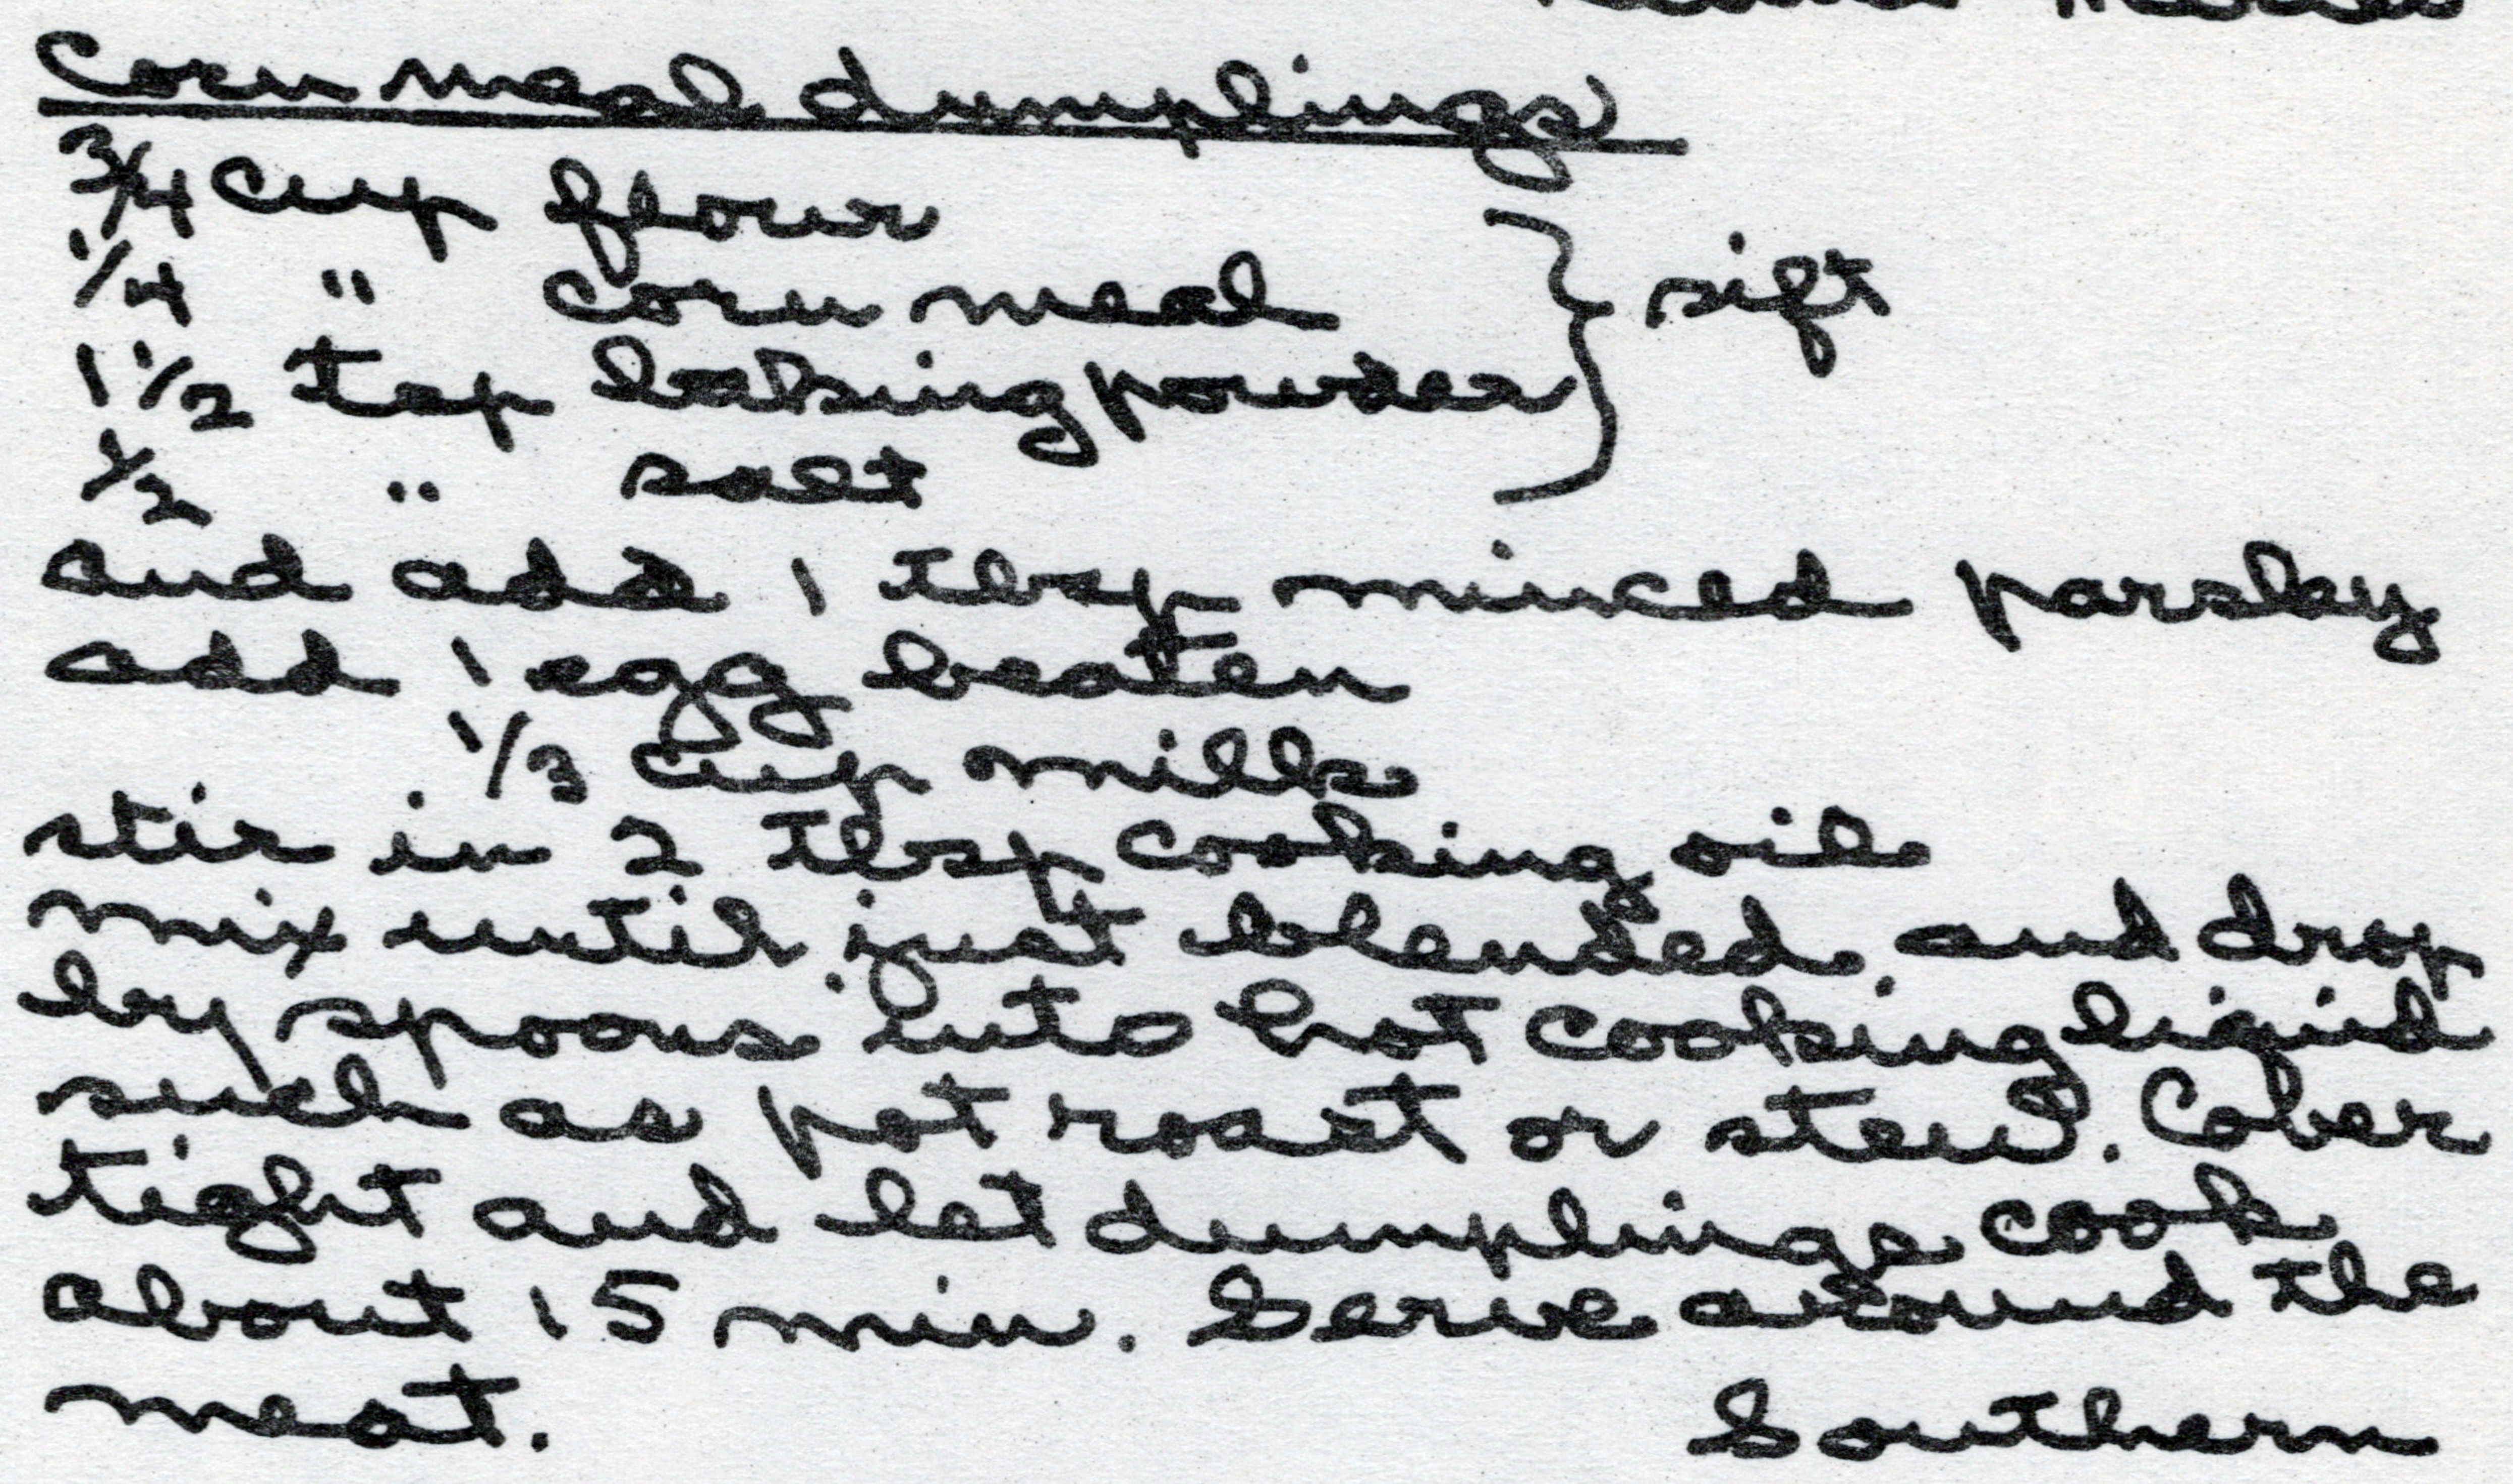 Corn meal dumplings
3/4 cup flour
1/4 " corn meal } sift
1 1/2 tsp baking powder
1/2 " salt
and add 1 tbsp minced parsley
add 1 egg beaten
1/3 cup milk
stir in 2 tbsp cooking oil
mix until just blended, and drop
by spoons into hot cooking liquid
such as pot roast or stew. Cover
tight and let dumplings cook
about 15 min. Serve around the
meat.
Southern